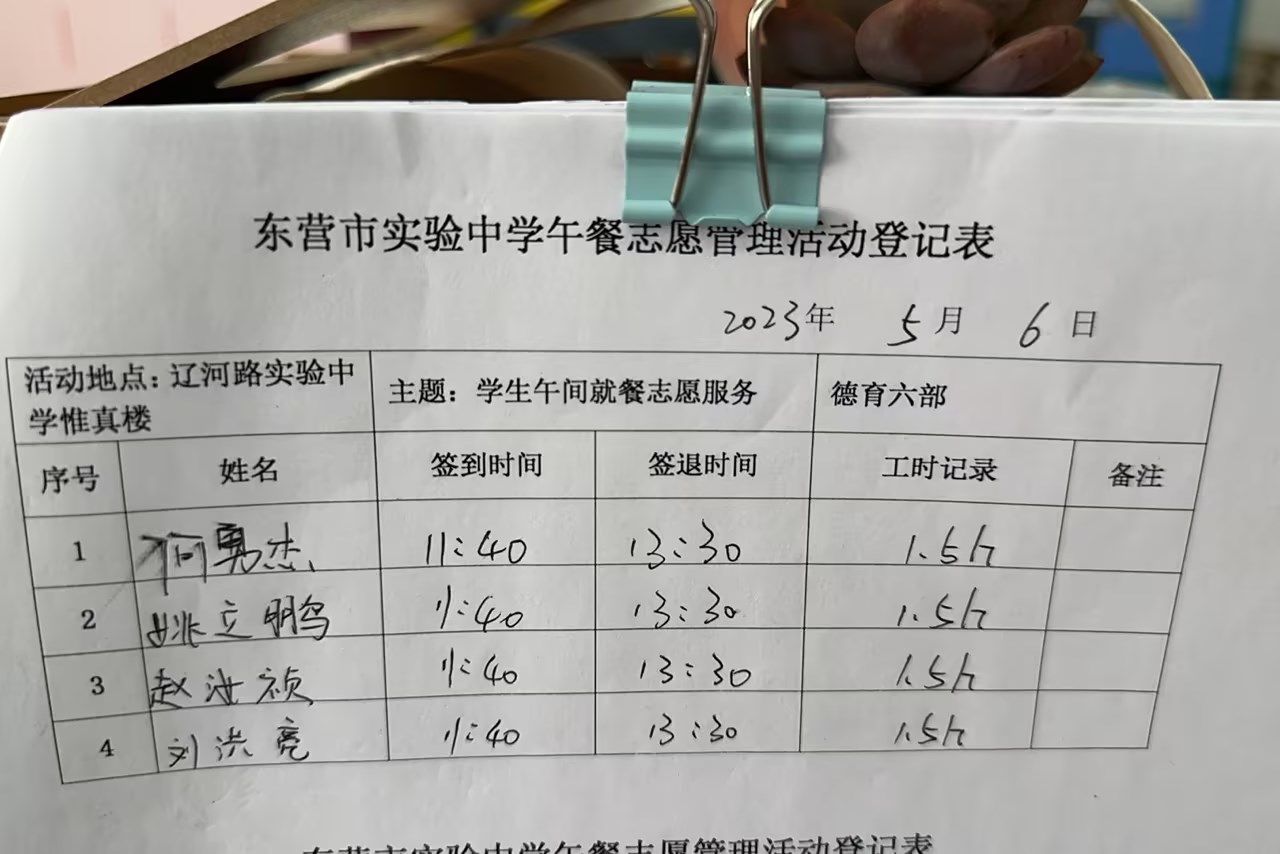 东营市实验中学午餐志愿管理活动登记表
2023年 5月 6日
活动地点：辽河路实验中学惟真楼 主题：学生午间就餐志愿服务 德育六部
序号 姓名 签到时间 签退时间 工时记录 备注
1 何勇杰 11:40 13:30 1.5h
2 姚立鹏 11:40 13:30 1.5h
3 赵汝祯 11:40 13:30 1.5h
4 刘洪亮 11:40 13:30 1.5h
东营市实验中学午餐志愿管理活动登记表